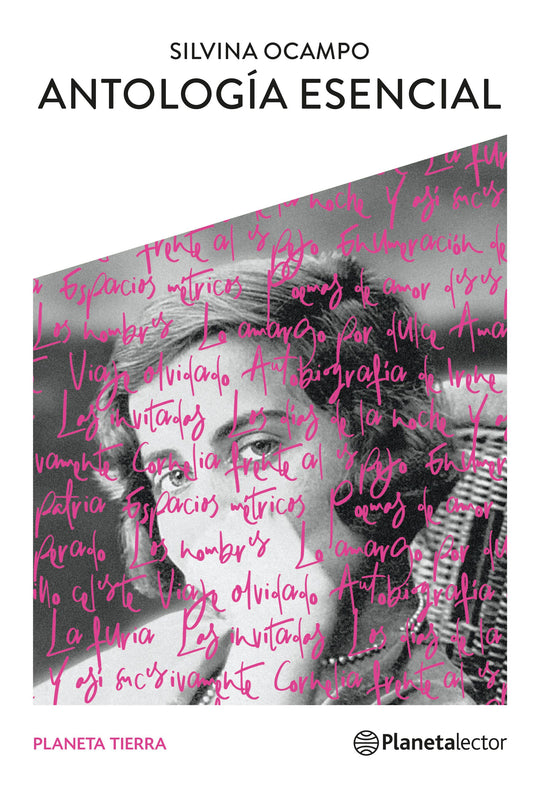 SILVINA OCAMPO
ANTOLOGÍA ESENCIAL
La fur
la noche Y así suces
frente al espejo Enumeración de
Espacios métricos Poemas de amor deses
Los nombres Lo amargo por dulce Ama
Viaje olvidado Autobiografía de Irene
Las invitadas Los días de la noche Y a
ivamente Cornelia frente al espejo Enumer
patria Espacios métricos Poemas de amor
perado Los nombres Lo amargo por du
illo celeste Viaje olvidado Autobiografía
La furia Las invitadas Los días de la
Y así sucesivamente Cornelia frente al es
PLANETA TIERRA
Planetalector